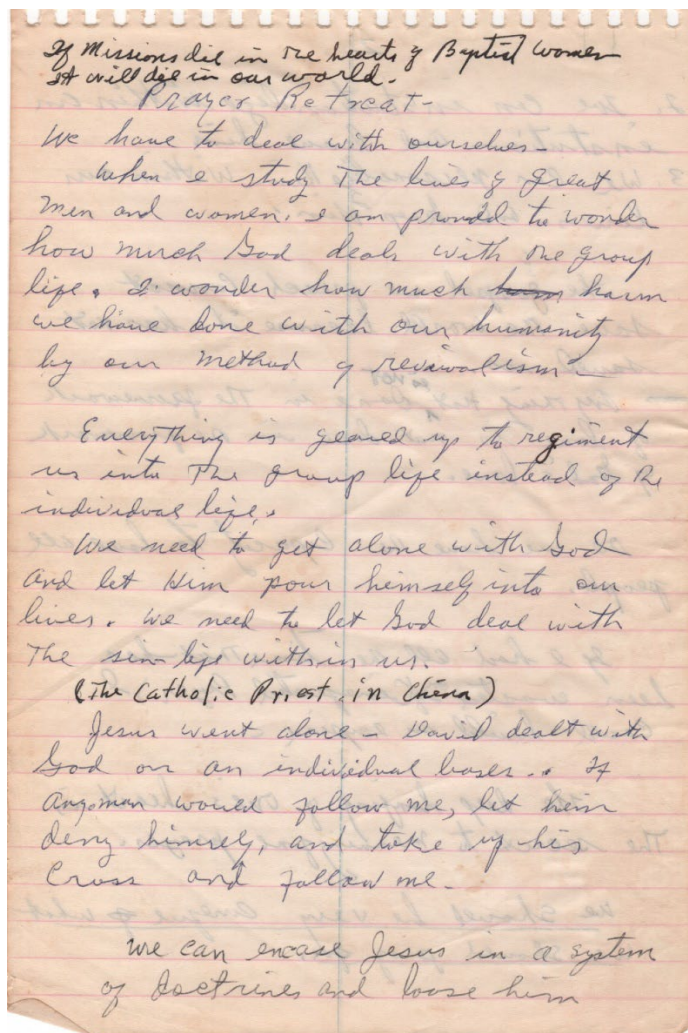 If Missions die in the hearts of Baptist women
It will die in our world.
Prayer Retreat-
We have to deal with ourselves-
When I study The lives of great
men and women. I am to wonder
how much God deals with the group
life. I wonder how much harm
we have done with our humanity
by our method of revivalism-
Everything is geared up to regiment
us into The group life instead of the
individual life.
We need to get alone with God
and let Him pour himself into our
lives. We need to let God deal with
The sin life within us.
(The Catholic Priest in China)
Jesus went alone - David dealt with
God on an individual bases.. If
any man would follow me, let him
deny himself, and take up his
Cross and follow me-
We can encase Jesus in a system
of doctrines and loose him